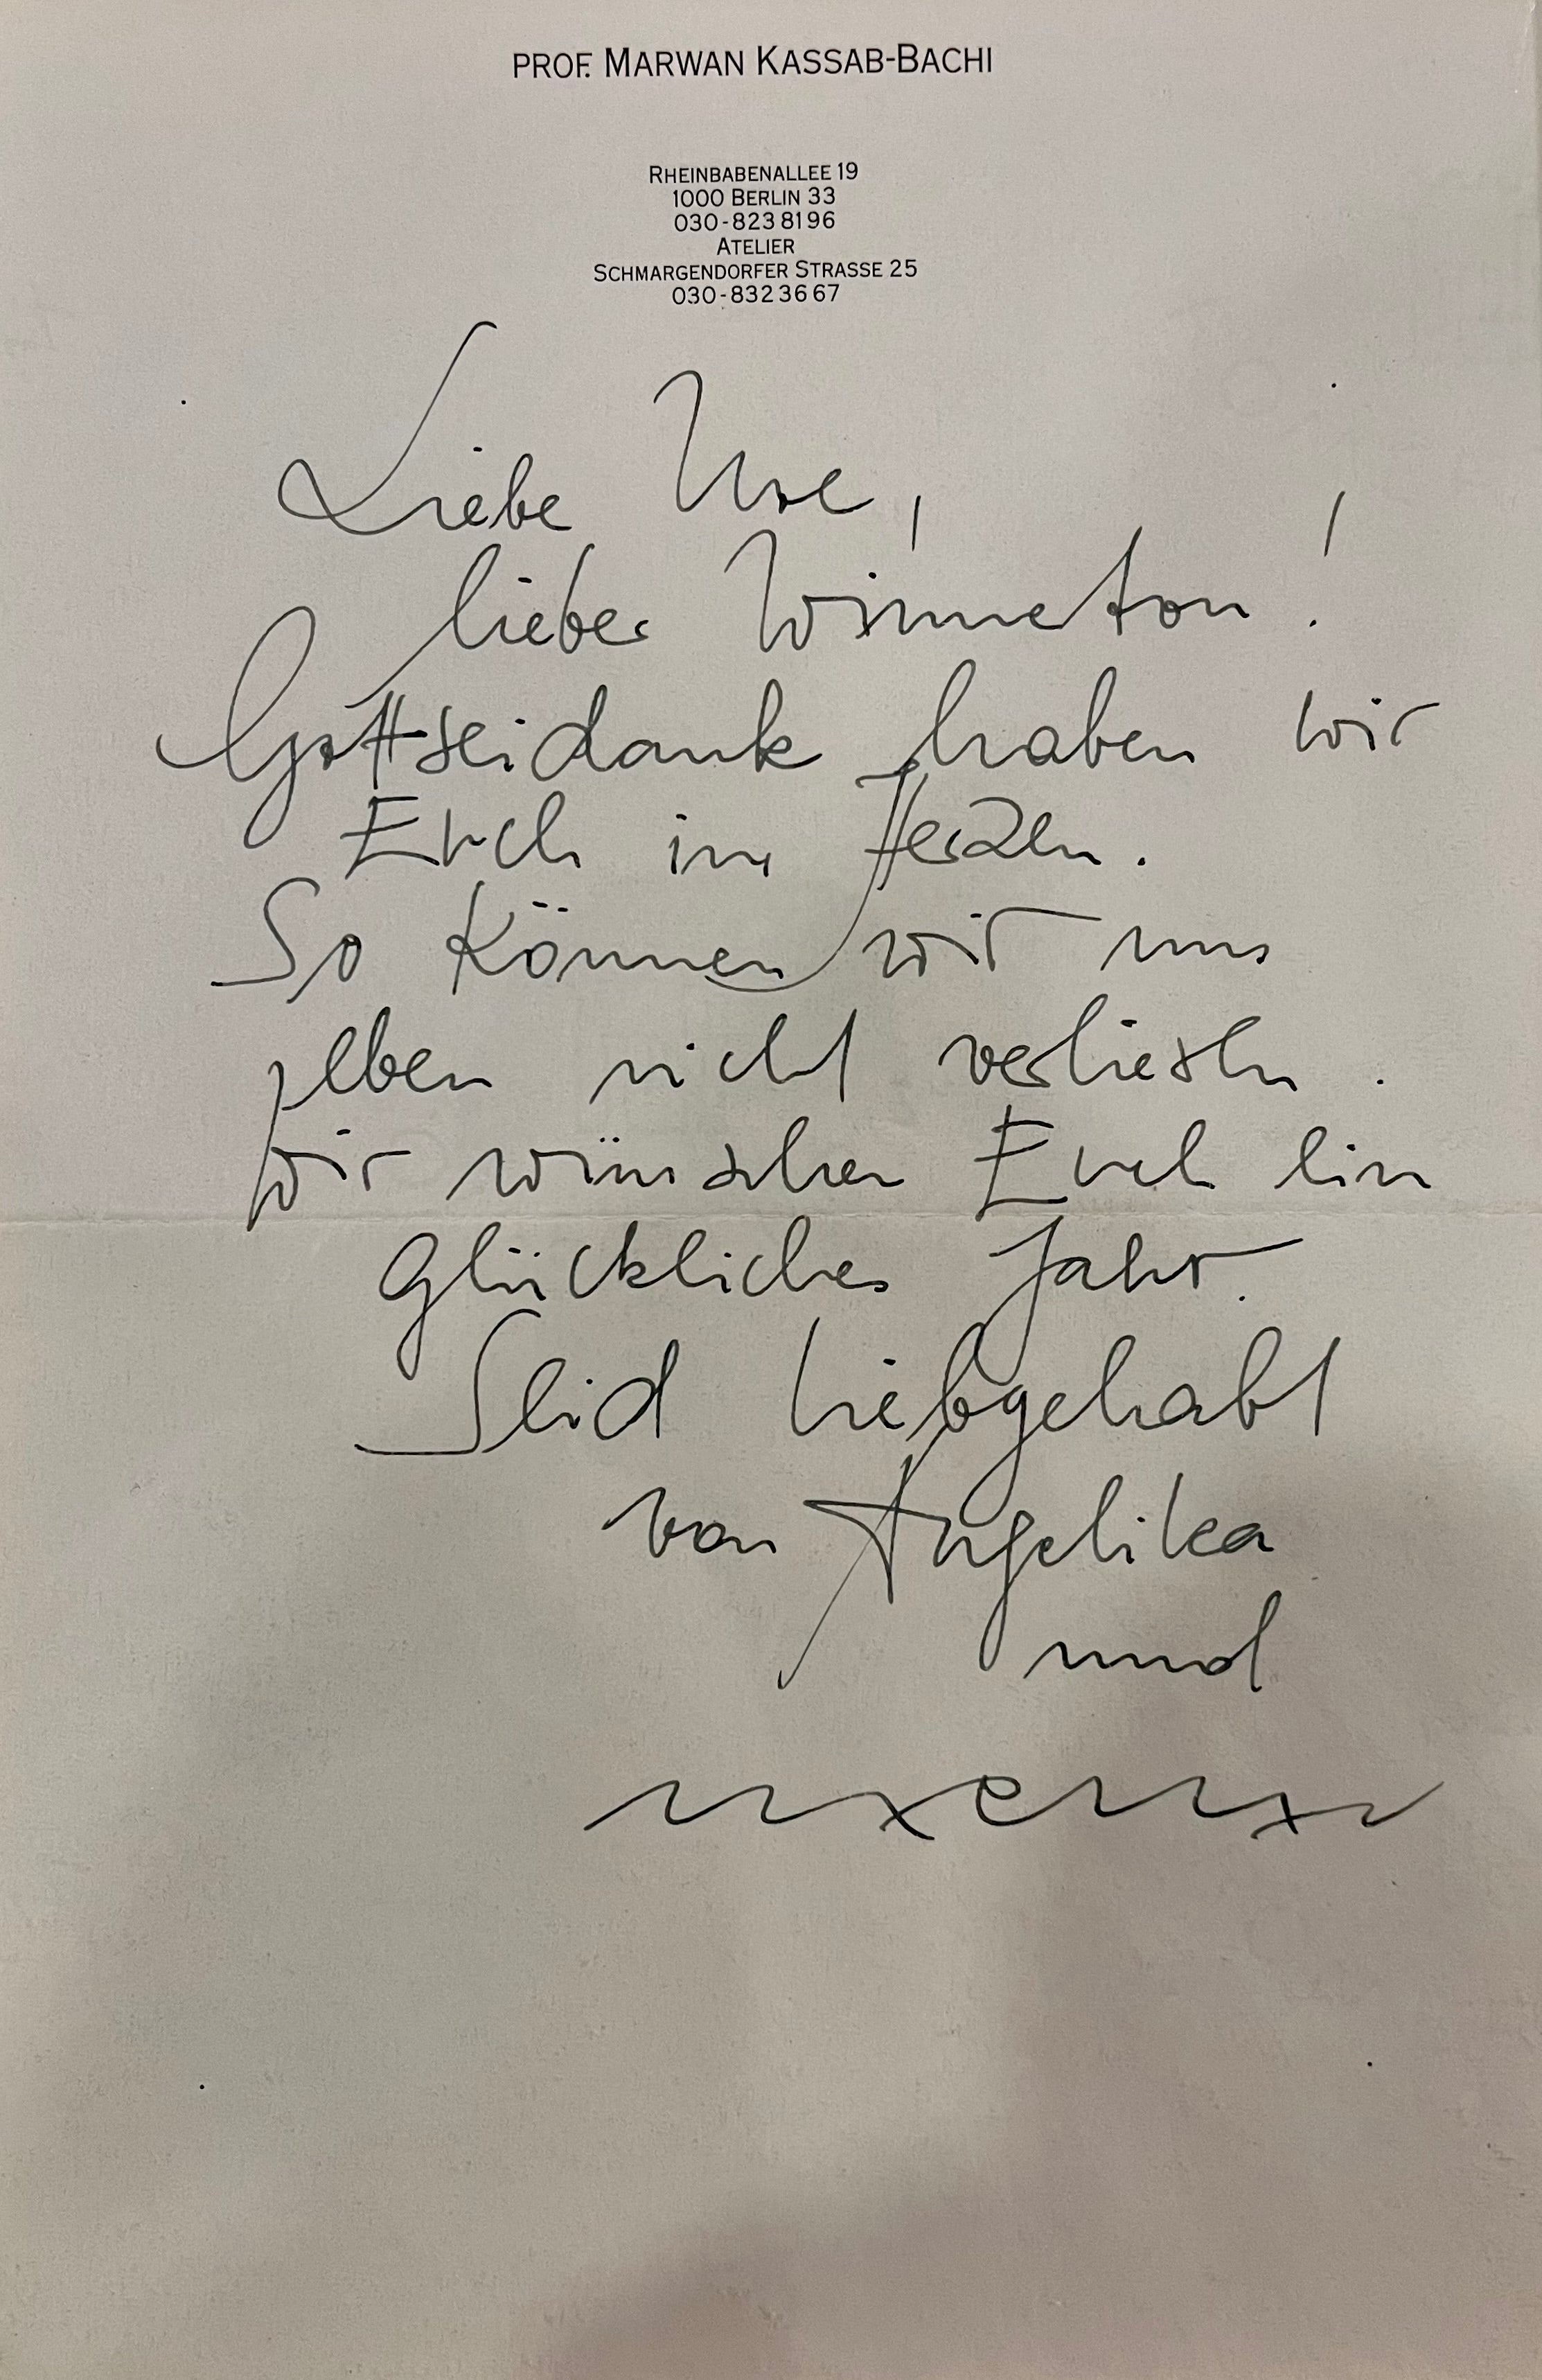 PROF. MARWAN KASSAB-BACHI
RHEINBABENALLEE 19
1000 BERLIN 33
030-823 81 96
ATELIER
SCHMARGENDORFER STRASSE 25
030-832 36 67
Liebe
lieber Winnetou!
Gottseidank haben wir
Euch im Herzen.
So können wir uns
eben nicht verlieren.
Wir wünschen Euch ein
glückliches Jahr.
Seid liebgehabt
von Angelika
und